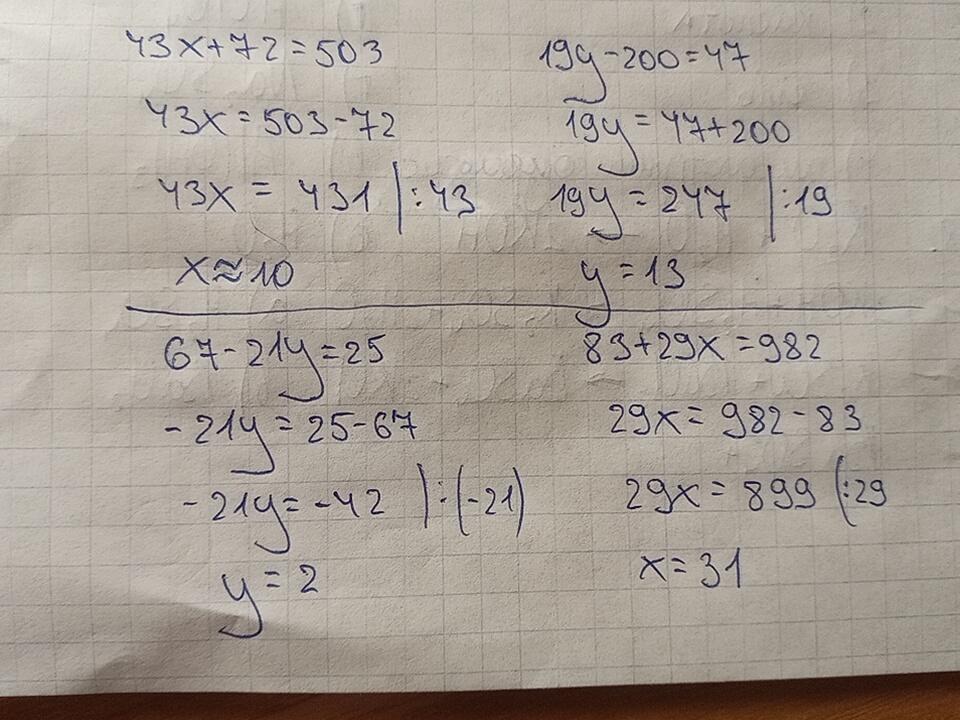 43x+72=503
43x=503-72
43x = 431 |:43
x≈10
19y-200=47
19y=47+200
19y=247 |:19
y=13
67-21y=25
-21y=25-67
-21y=-42 |:(-21)
y=2
83+29x=982
29x=982-83
29x=899 |:29
x=31